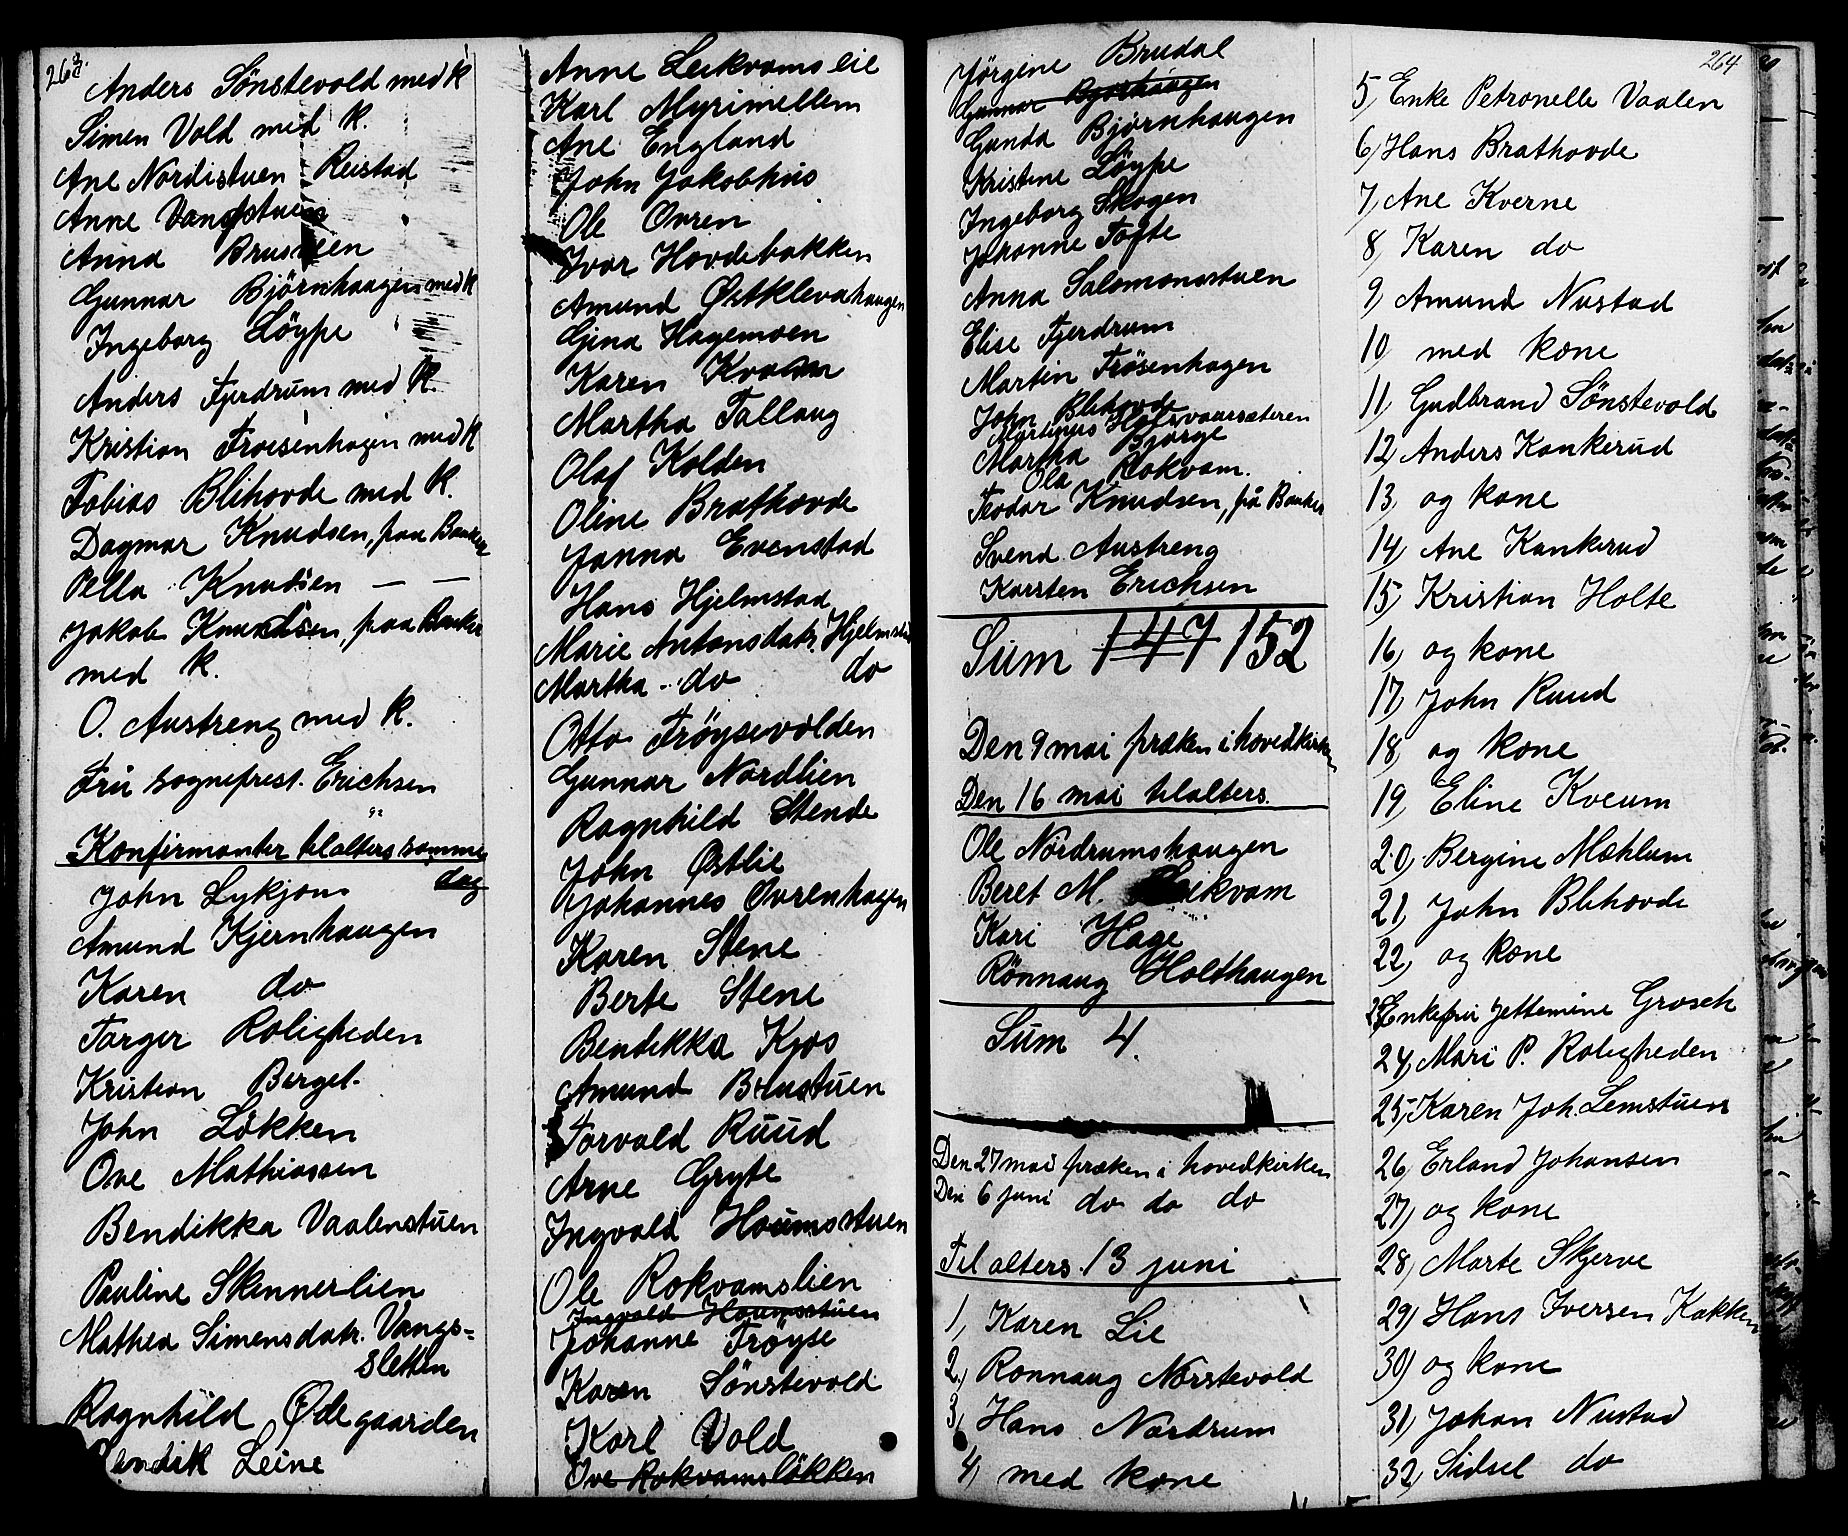 263.
Anders Sönstevold med k
Simen Vold med k.
Ane Nordistuen Reistad
Anne Vangstuen
Anna Brustuen
Gunnar Björnhaugen med k
Ingeborg Löype
Anders Fjerdrum med k.
Kristian Froisenhagen med k
Tobias Blihovde med k.
Dagmar Knudsen, paa Banken
Pella Knudsen — —
Jakob Knudsen, paa Banken
med k.
O. Austreng med k.
Fru sogneprest. Erichsen
Konfirmanter tilalters samme
dag
John Lykjom
Amund Kjernhaugen
Karen do
Torger Roligheden
Kristian Berget.
John Lökken
Ove Mathiassen
Bendikka Vaalenstuen
Pauline Skennerlien
Mathea Simensdatr. Vangs-
sletten
Ragnhild Ödegaarden
Bendik Leine
Anne Leikvamseie
Karl Myrimellem
Ane England
John Jakobhus
Ole Övren
Ivar Hovdebakken
Amund Östklevahaugen
Gina Hagemoen
Karen Kvam
Martha Tallaug
Olaf Kolden
Oline Brathovde
Janna Evenstad
Hans Hjelmstad
Marie Antonsdatr. Hjelmstad
Martha do do
Otto Fröysevolden
Gunnar Nordlien
Ragnhild Stende
John Östlie
Johannes Övrenhagen
Karen Stene
Berte Stene
Bendikka Kjos
Amund Brustuen
Torvald Ruud
Arne Gryte
Ingvald Houmsstuen
Ole Rokvamslien
Ingvald Houmsstuen
Johanne Fröyse
Karen Sönstevold
Karl Vold
Ove Rokvamslökken
Jörgine Brudal
Gunnar Bjorhaugen
Gunda Björnhaugen
Kristine Löype
Ingeborg Skogen
Johanne Tofte
Anna Salomonsstuen
Elise Fjerdrum
Martin Frösenhagen
John Blihovde
Martinus Halvvaarsæteren
Martha Bjørge
Ola Rokvam.
Teodor Knudsen, på Banken
Svend Austreng
Karsten Erichsen
Sum 147 152
Den 9 mai præken i hovedkirken
Den 16 mai tilalters.
Ole Nordrumshaugen
Beret M. Leikvam
Kari Hage
Rönnaug Holthaugen
Sum 4.
Den 27 mai præken i hovedkirken
Den 6 juni do do do
Til alters 13 juni
1, Karen Lie
2, Ronnaug Norstevold
3, Hans Nordrum
4, med kone
264
5, Enke Petronelle Vaalen
6, Hans Brathovde
7, Ane Kverne
8, Karen do
9, Amund Nustad
10 med kone
11, Gudbrand Sönstevold
12, Anders Kankerud
13, og kone
14, Ane Kankerud
15, Kristian Holte
16, og kone
17, John Ruud
18, og kone
19, Eline Kveum
20, Bergine Mæhlum
21, John Blihovde
22, og kone
23, Enkefru Jettemine Grosch
24, Mari P. Roligheden
25, Karen Joh. Lemstuen
26, Erland Johansen
27, og kone
28, Marte Skjerve
29, Hans Iversen Kakken
30) og kone
31, Johan Nustad
32, Sidsel do